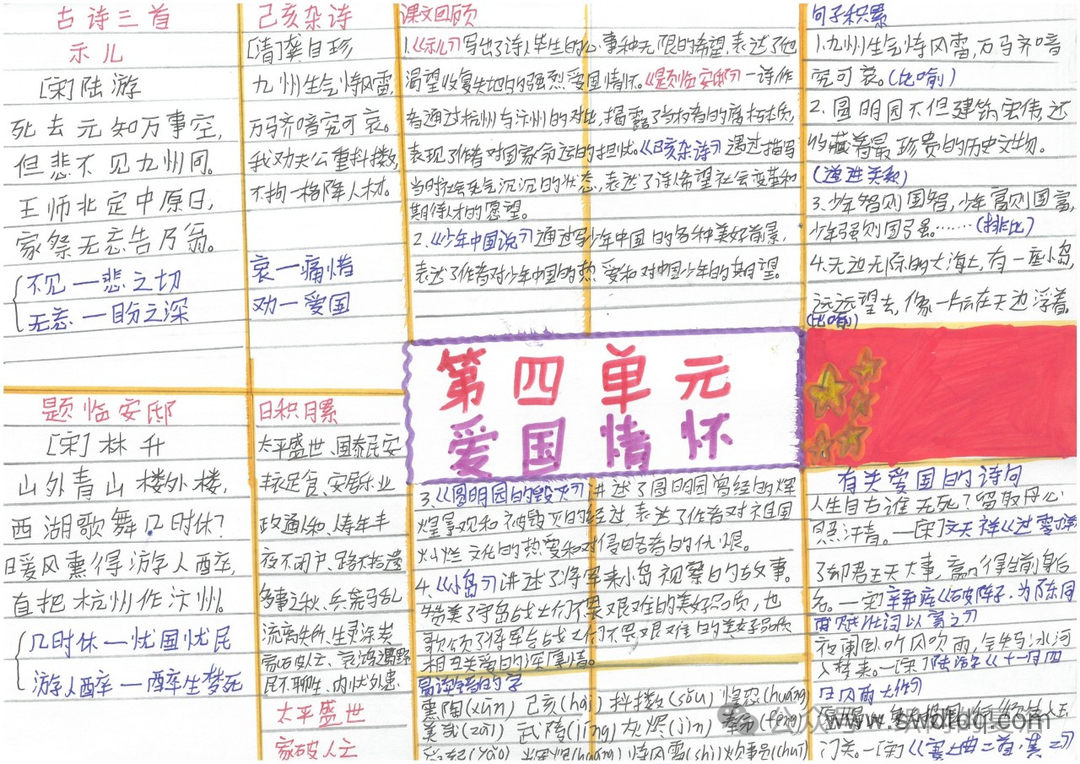 古诗三首
示儿
[宋]陆游
死去元知万事空,
但悲不见九州同。
王师北定中原日,
家祭无忘告乃翁。
不见一悲之切
无忘一盼之深
己亥杂诗
[清]龚自珍
九州生气恃风雷,
万马齐喑究可哀。
我劝天公重抖擞,
不拘一格降人材。
哀一痛惜
劝一爱国
课文回顾
1.《示儿》写出了诗人毕生的心事和无限的希望,表达了他
渴望收复失地的强烈爱国情怀。《题临安邸》一诗作
者通过杭州与汴州的对比,揭露了当权者的腐朽本质,
表现了作者对国家命运的担忧。《己亥杂诗》通过描写
当时社会死气沉沉的状态,表达了诗人希望社会变革和
期待人才的愿望。
2.《少年中国说》通过写少年中国的各种美好前景,
表达了作者对少年中国的热爱和对中国少年的期望。
句子积累
1.九州生气恃风雷,万马齐喑
究可哀。(比喻)
2.圆明园不但建筑宏伟,还
收藏着最珍贵的历史文物。
(递进关系)
3.少年智则国智,少年富则国富,
少年强则国强。……(排比)
4.无边无际的大海上,有一座小岛,
远远望去,像一片云在天边浮着。
(比喻)
第四单元
爱国情怀
题临安邸
[宋]林升
山外青山楼外楼,
西湖歌舞几时休?
暖风熏得游人醉,
直把杭州作汴州。
几时休一忧国忧民
游人醉一醉生梦死
日积月累
太平盛世、国泰民安
丰衣足食、安居乐业
政通人和、人寿年丰
夜不闭户、路不拾遗
多事之秋、兵荒马乱
流离失所、生灵涂炭
家破人亡、哀鸿遍野
民不聊生、内忧外患
太平盛世
家破人亡
3.《圆明园的毁灭》讲述了圆明园曾经的辉
煌景观和被毁灭的经过,表达了作者对祖国
灿烂文化的热爱和对侵略者的仇恨。
4.《小岛》讲述了将军来小岛视察的故事。
赞美了守岛战士们不畏艰难的美好品质,也
歌颂了将军与战士们不畏艰难的美好品质
相互关爱的深厚情。
易读错的字
熏陶(xūn) 己亥(hài) 抖擞(sǒu) 惶恐(huáng)
(zài) 武陵(líng) 灰烬(jìn) (fèng)
恃风雷(shì) 炊事员(chuī)
有关爱国的诗句
人生自古谁无死?留取丹心
照汗青。一[宋]文天祥《过零丁洋》
了却君王天下事,赢得生前身后
名。一[宋]辛弃疾《破阵子·为陈同
甫赋壮词以寄之》
夜阑卧听风吹雨,铁马冰河
入梦来。一[宋]陆游《十一月四
日风雨大作》
门关。一《塞上曲二首·其二》
公众号
www.swdfdq.com